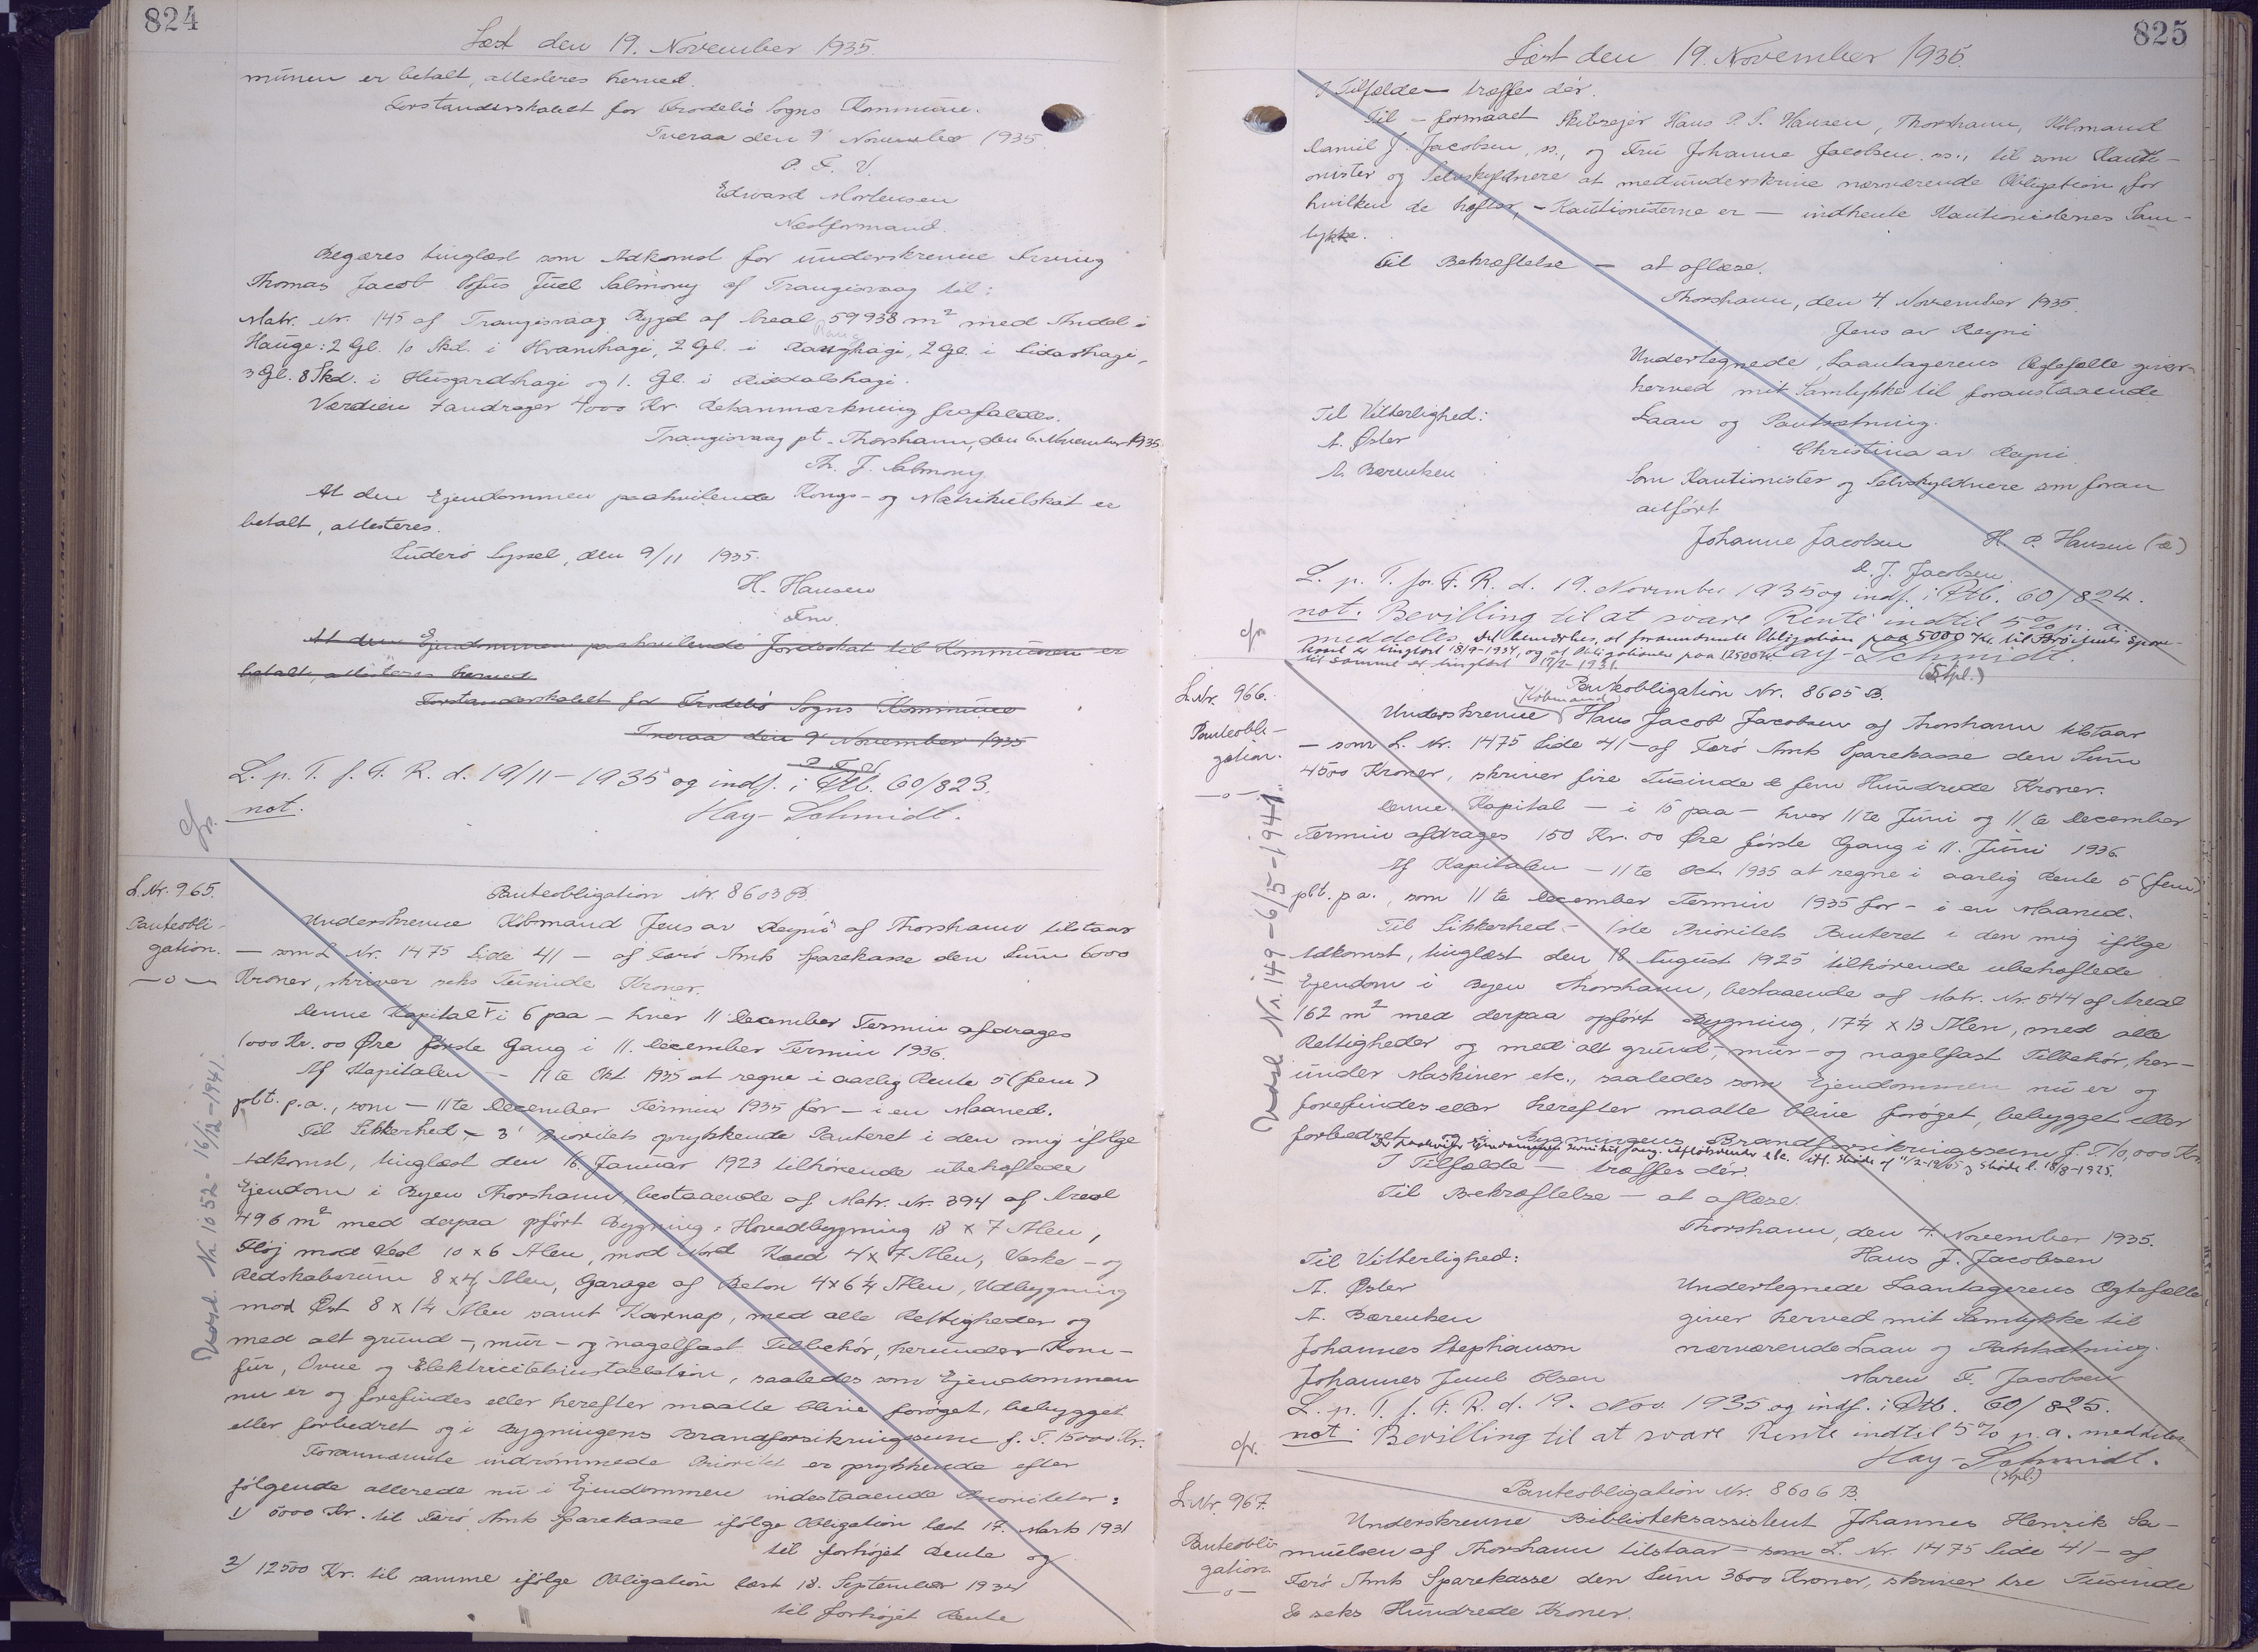 824
Læst den 19. November 1935.
munen er betalt, attesteres herved.
Forstanderskabet for Frodebö Sogns Kommune.
Tveraa den 9' November 1935
P. F. V.
Edward Mortensen
Næstformand.
Begæres tinglæst som Adkomst for underskrevne
Thomas Jacob Sofus Juel Salmony af Trangisvaag til:
Matr. Nr. 145 af Trangisvaag Bygd af Areal 59938 m² med Andel i
Hauge: 2 Gl. 10 Skd. i Hvannhagi, 2 Gl. i 2 Gl. i Lidarhagi,
3 Gl. 8 Skd. i Husgardshagi og 1. Gl. i
Værdien andrager 4000 Kr. Retsanmærkning frafaldes.
Trangisvaag pt. Thorshavn, den 6. November 1935
Th. J. Salmony
At den Ejendommen paahvilende Konge- og Matrikulskat er
betalt, attesteres.
Suderö Syssel, den 9/11 1935.
H. Hansen
Fm.
At den Ejendommen paahvilende Jordeskat til Kommunen er
betalt, attesteres herved
Forstanderskabet for Frodebö Sogns Kommune
Tveraa den 9' November 1935
P. F. V.
L. p. T. f. F. R. d. 19/11-1935 og indf. i Ptb. 60/823.
not.
Hay-Schmidt.
L. Nr. 965.
Panteobli-
gation.
—o—
Panteobligation Nr. 8603 B.
Underskrevne Købmand Jens av Reyni af Thorshavn tilstaar
— som L. Nr. 1475 Side 41 — af Færö Amts Sparekasse den Sum 6000
Kroner, skriver seks Tusinde Kroner.
Denne Kapital — i 6 paa — hver 11 December Termin afdrages
1000 Kr. 00 Øre første Gang i 11. December Termin 1936.
Af Kapitalen — 11te Okt 1935 at regne i aarlig Rente 5 (fem)
pCt. p.a., som — 11te December Termin 1935 for — i en Maaned.
Til Sikkerhed — 3' Prioritets oprykkende Panteret i den mig ifølge
Adkomst, tinglæst den 16. Januar 1923 tilhørende ubehæftede
Ejendom i Byen Thorshavn, bestaaende af Matr. Nr. 394 af Areal
496 m² med derpaa opført Bygning: Hovedbygning 18 x 7 Alen,
Fløj mod Vest 10 x 6 Alen, mod Nord 4 x 7 Alen, Vaske- og
Redskabsrum 8 x 4 Alen, Garage af Beton 4 x 6¼ Alen, Udbygning
mod Øst 8 x 1¼ Alen samt Karnap, med alle Rettigheder og
med alt grund-, mur- og nagelfast Tilbehør, herunder Kom-
fur, Ovne og Elektricitetsinstallation, saaledes som Ejendommen
nu er og forefindes eller herefter maatte blive forøget, bebygget
eller forbedret og i Bygningens Brandforsikringssum f. T. 15000 Kr.
Forannævnte indrømmede Prioritet er oprykkende efter
følgende allerede nu i Ejendommen indestaaende Prioriteter:
1/ 5000 Kr. til Færö Amts Sparekasse ifølge Obligation læst 17. Marts 1931
til forhøjet Rente og
2/ 12500 Kr. til samme ifølge Obligation læst 18. September 1934
til forhøjet Rente
Kvast. Nr. 1052 - 16/12-1941.
825
Læst den 19. November 1935.
I Tilfælde — træffes dér.
Til — formaaet Skibsejer Hans P. S. Hansen, Thorshavn, Købmand
Daniel J. Jacobsen, ss., og Fru Johanne Jacobsen, ss., til som Kauti-
onister og Selvskyldnere at medunderskrive nærværende Obligation, for
hvilken de hæfter, — Kautionisterne er — indhente Kautionisternes Sam-
tykke.
Til Bekræftelse — at aflæse.
Thorshavn, den 4 November 1935.
Jens av Reyni
Undertegnede, Laantagerens Ægtefælle giver
herved mit Samtykke til foranstaaende
Til Vitterlighed:
Laan og Pantsætning.
A. Øster
Christina av Reyni.
A. Bærentsen
Som Kautionister og Selvskyldnere som foran
anført
Johanne Jacobsen H. P. Hansen (æ)
D. J. Jacobsen.
L. p. T. for F. R. d. 19. November 1935 og indf. i Ptb. 60/824.
not. Bevilling til at svare Rente indtil 5% p. a.
meddeles. Det bemærkes, at forannævnte Obligation paa 5000 Kr. til Spare-
kasse er tinglæst 18/9-1934, og at Obligationen paa 12500 Kr.
til samme er tinglæst 17/2-1931.
Hay-Schmidt.
(Stpl.)
L. Nr. 966.
Panteobli-
gation.
—o—
Panteobligation Nr. 8605 B.
Underskrevne Købmand Hans Jacob Jacobsen af Thorshavn tilstaar
— som L. Nr. 1475 Side 41 — af Færö Amts Sparekasse den Sum
4500 Kroner, skriver fire Tusinde & fem Hundrede Kroner.
Denne Kapital — i 15 paa — hver 11te Juni og 11te December
Termin afdrages 150 Kr. 00 Øre første Gang i 11. Juni 1936.
Af Kapitalen — 11te Oct 1935 at regne i aarlig Rente 5 (fem)
pCt. p.a., som 11te December Termin 1935 for — i en Maaned.
Til Sikkerhed — 1ste Prioritets Panteret i den mig ifølge
Adkomst, tinglæst den 18 August 1925 tilhørende ubehæftede
Ejendom i Byen Thorshavn, bestaaende af Matr. Nr. 544 af Areal
162 m² med derpaa opført Bygning, 17¼ x 13 Alen, med alle
Rettigheder og med alt grund-, mur- og nagelfast Tilbehør, her-
under Maskiner etc., saaledes som Ejendommen nu er og
forefindes eller herefter maatte blive forøget, bebygget eller
forbedret og i Bygningens Brandforsikringssum f. T. 10,000 Kr.
Der paahviler Ejendommen Servitut ang. etc. iflg. Skøde af 11/2-1905 og Skøde l. 18/8-1925.
I Tilfælde — træffes dér.
Til Bekræftelse — at aflæse.
Thorshavn, den 4. November 1935.
Til Vitterlighed:
Hans J. Jacobsen
A. Øster
Undertegnede Laantagerens Ægtefælle
A. Bærentsen
giver herved mit Samtykke til
Johannes Stephanson
nærværende Laan og Pantsætning.
Johannes Juul Olsen
Maren F. Jacobsen
L. p. T. f. F. R. d. 19. Nov. 1935 og indf. i Ptb. 60/825.
not: Bevilling til at svare Rente indtil 5% p. a. meddeles
Hay-Schmidt.
(Stpl.)
Kvast. Nr. 149 - 6/5-1941.
L. Nr. 967.
Panteobli-
gation
—o—
Panteobligation Nr. 8606 B.
Underskrevne Biblioteksassistent Johannes Henrik Sa-
muelsen af Thorshavn tilstaar — som L. Nr. 1475 Side 41 — af
Færö Amts Sparekasse den Sum 3600 Kroner, skriver tre Tusinde
& seks Hundrede Kroner.